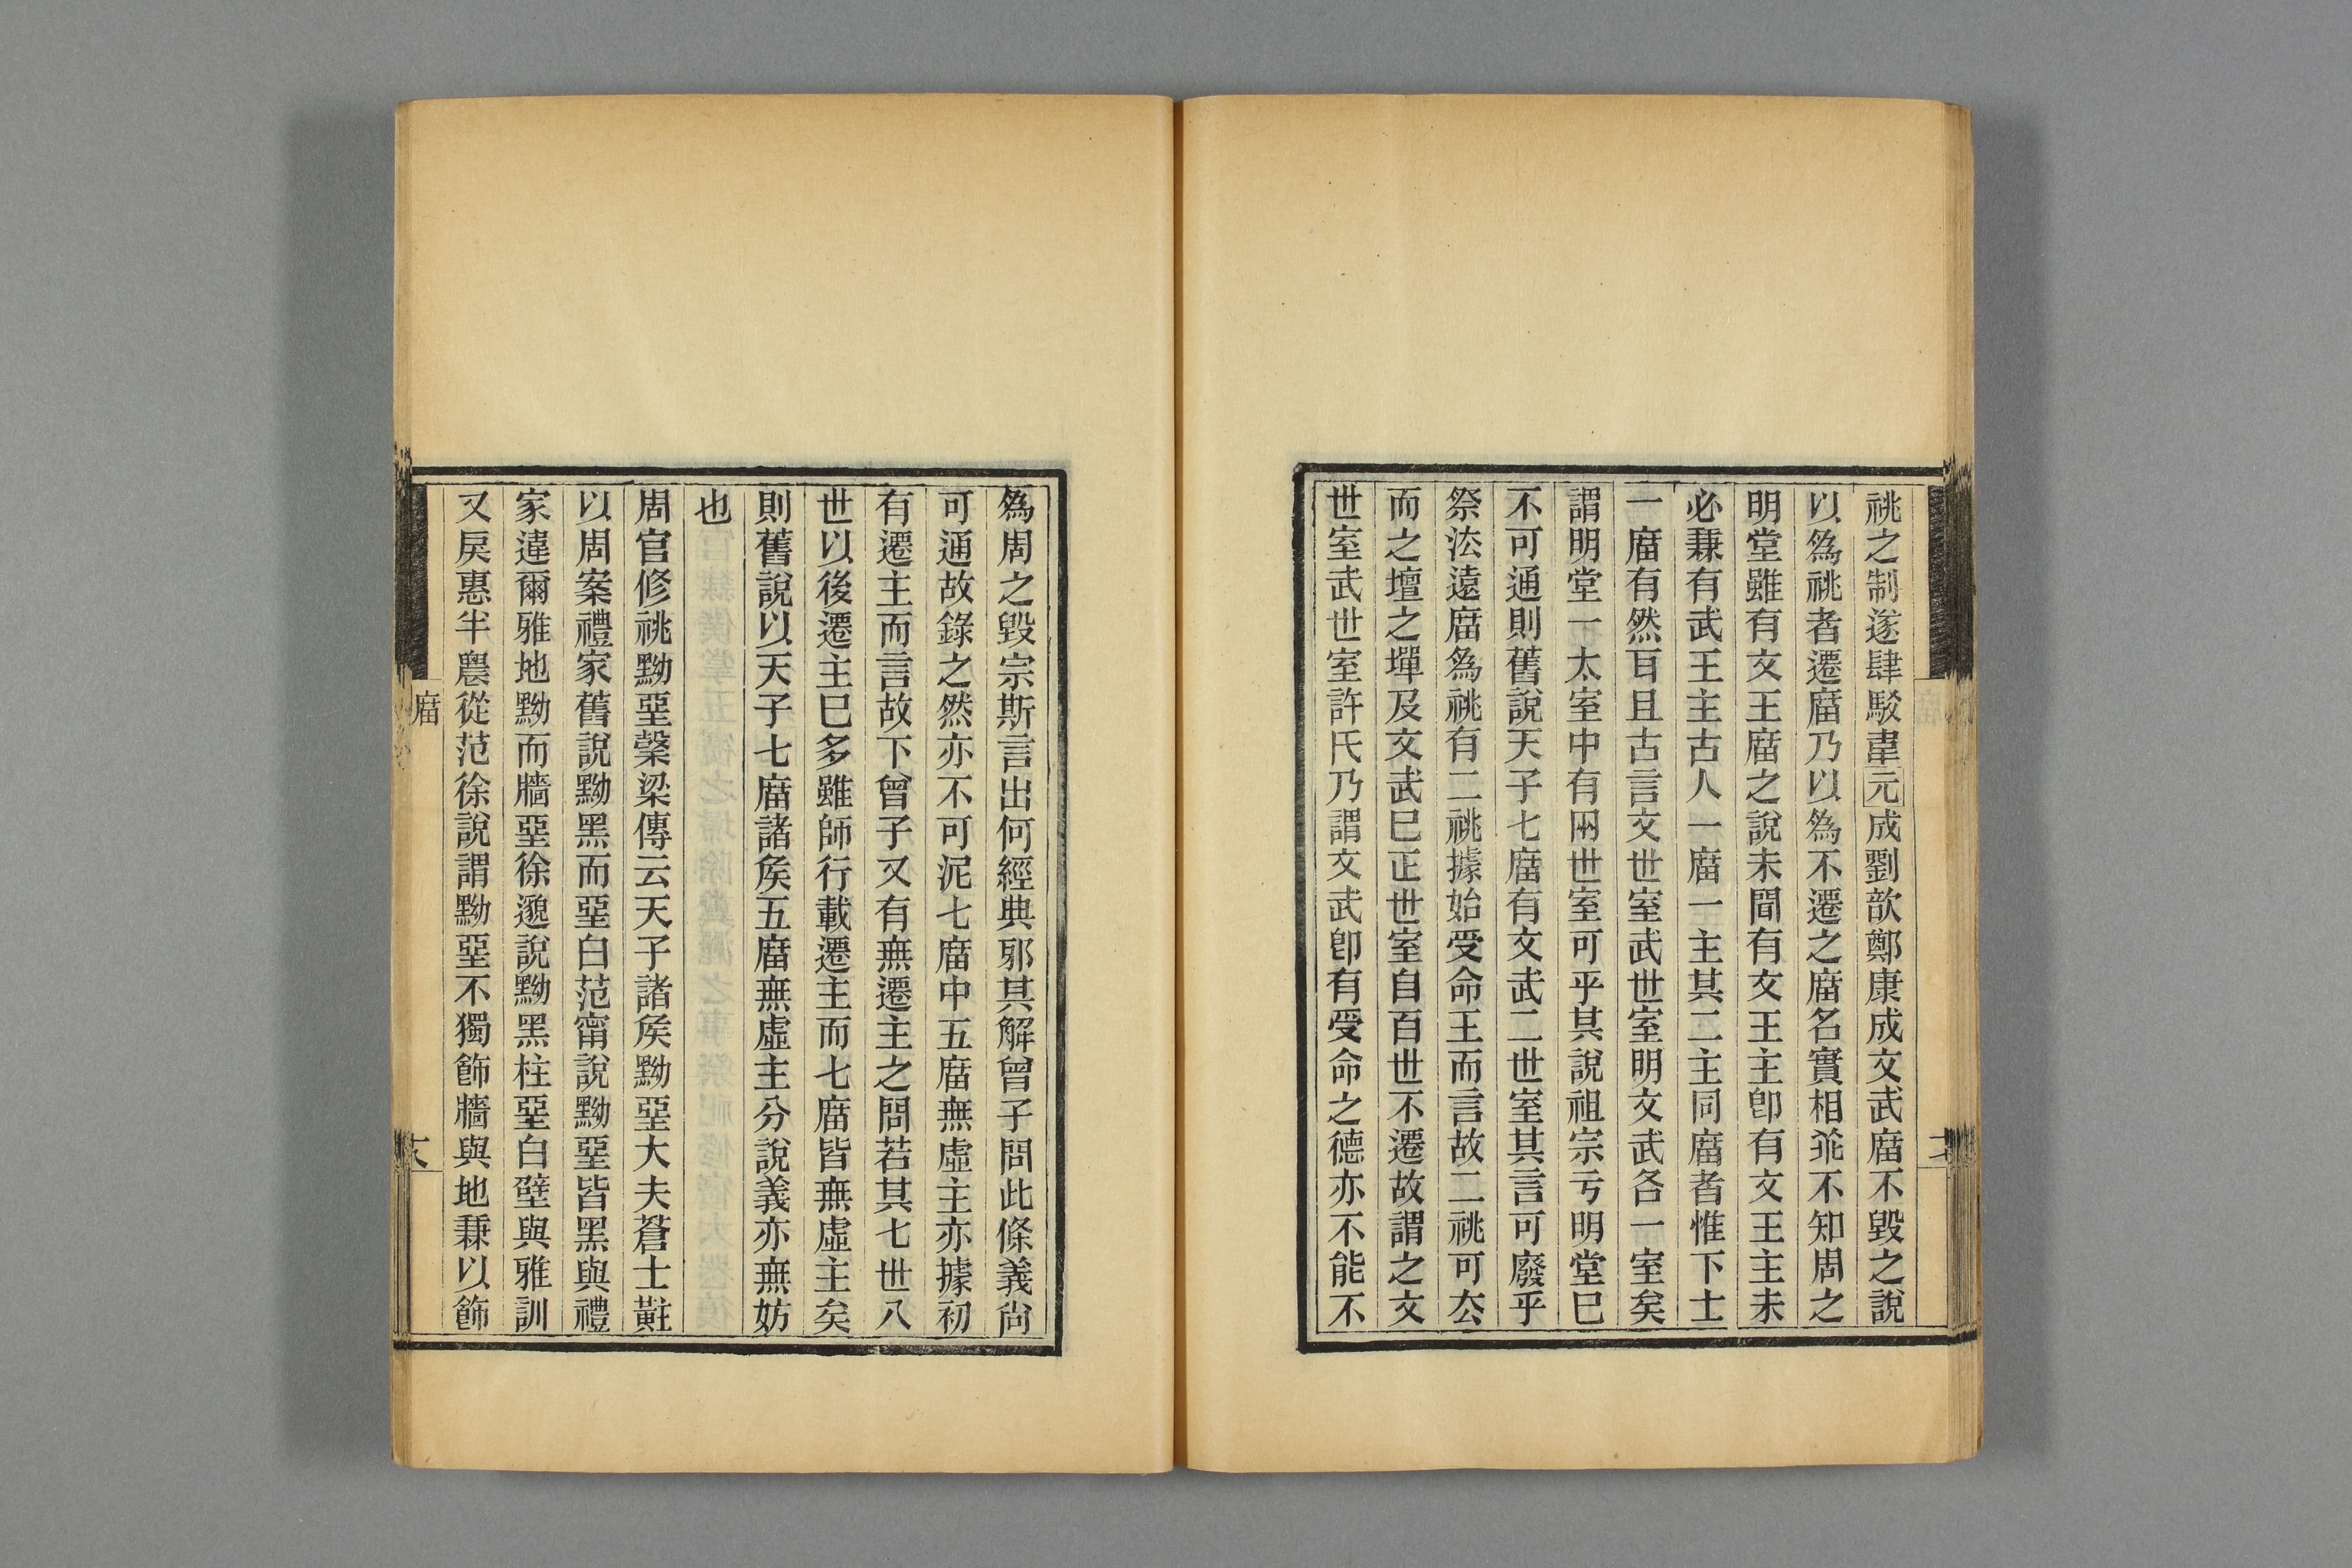 祧之制遂肆駁韋元成劉歆鄭康成文武庿不毀之說
以爲祧者遷庿乃以爲不遷之庿名實相𠦬不知周之
明堂雖有文王庿之說未聞有文王主卽有文王主未
必兼有武王主古人一庿一主其二主同庿者惟下士
一庿有然耳且古言文世室武世室明文武各一室矣
謂明堂一太室中有兩世室可乎其說祖宗亏明堂巳
不可通則舊說天子七庿有文武二世室其言可廢乎
祭法遠庿爲祧有二祧據始受命王而言故二祧可厺
而之壇之墠及文武巳正世室自百世不遷故謂之文
世室武世室許氏乃謂文武卽有受命之德亦不能不
爲周之毀宗斯言出何經典邪其解曾子問此條義尙
可通故錄之然亦不可泥七庿中五庿無虛主亦據初
有遷主而言故下曾子又有無遷主之問若其七世八
世以後遷主巳多雖師行載遷主而七庿皆無虛主矣
則舊說以天子七庿諸矦五庿無虛主分說義亦無妨
也
周官修祧黝堊榖梁傳云天子諸矦黝堊大夫蒼士黈
以周案禮家舊說黝黑而堊白范甯說黝堊皆黑與禮
家違爾雅地黝而牆堊徐邈說黝黑柱堊白壁與雅訓
又戾惠半農從范徐說謂黝堊不獨飾牆與地兼以飾
庿